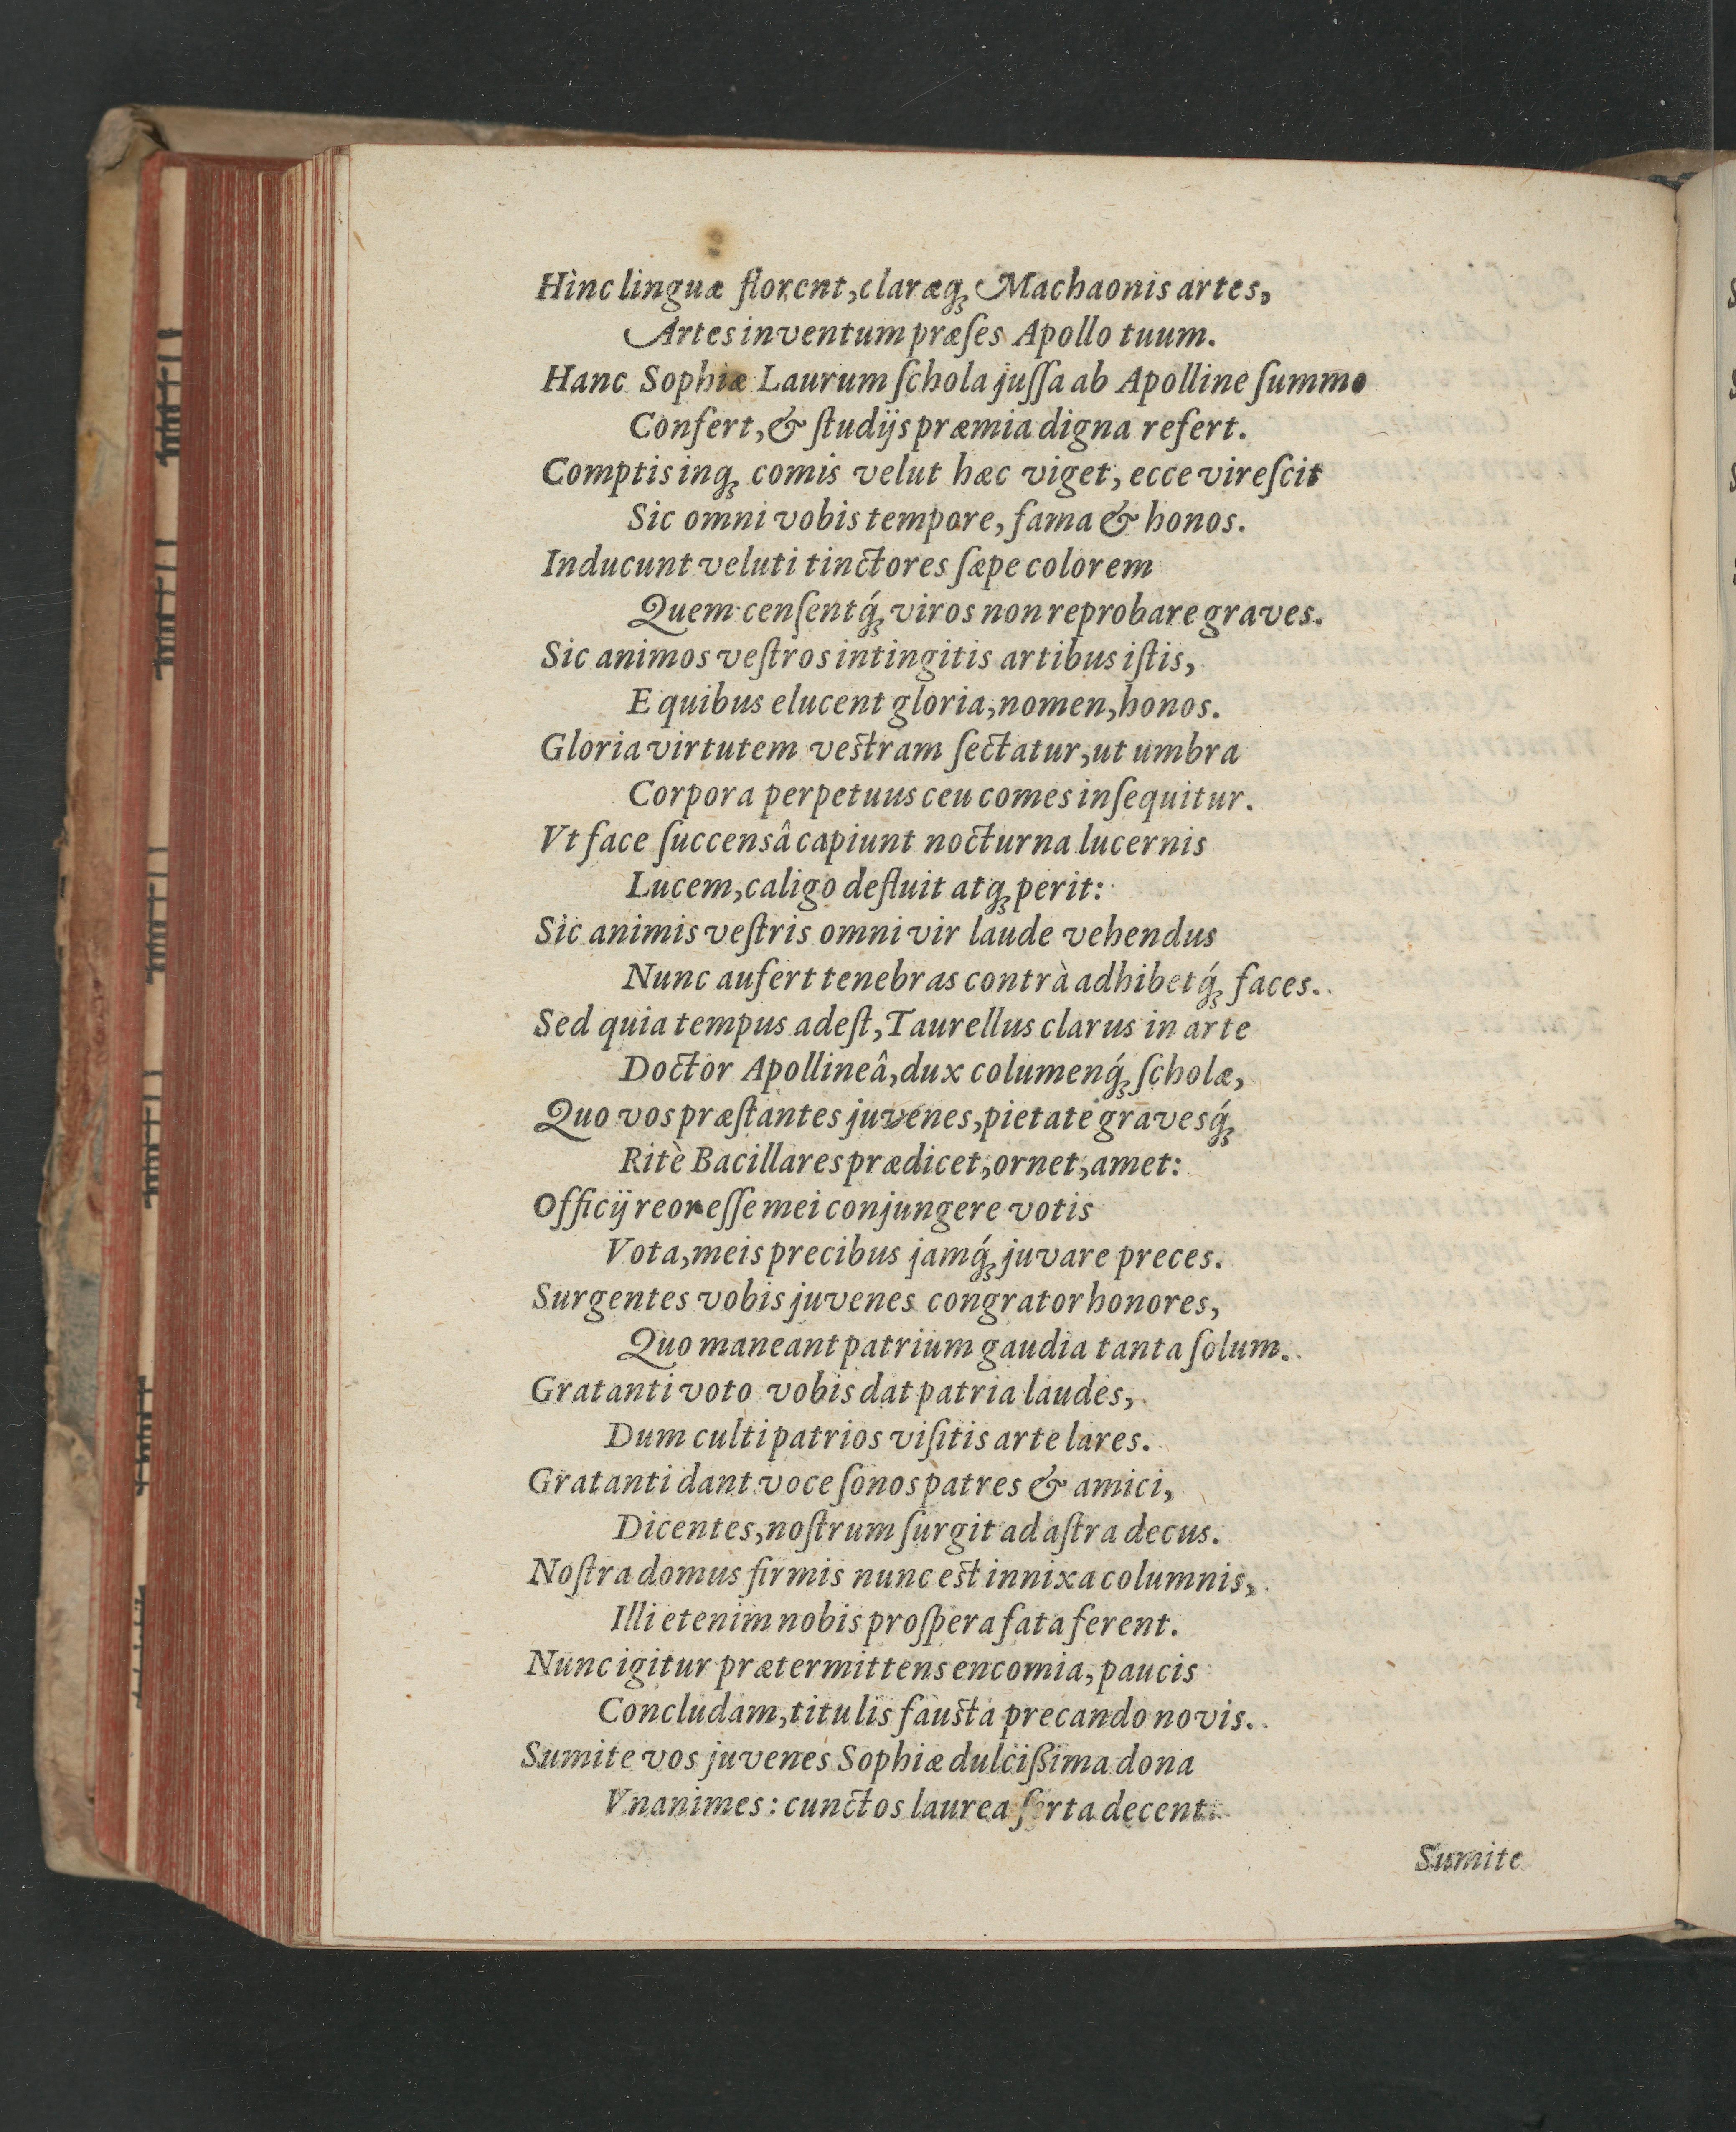 Hinc linguæ florent, claræq; Machaonis artes,
Artes inventum præſes Apollo tuum.
Hanc Sophiæ Laurum ſchola juſſa ab Apolline ſummo
Confert, & ſtudijs præmia digna refert.
Comptis inq; comis velut hæc viget, ecce vireſcit
Sic omni vobis tempore, fama & honos.
Inducunt veluti tinctores ſæpe colorem
Quem cenſentq́; viros non reprobare graves.
Sic animos veſtros intingitis artibus iſtis,
E quibus elucent gloria, nomen, honos.
Gloria virtutem veſtram ſectatur, ut umbra
Corpora perpetuus ceu comes inſequitur.
Vt face ſuccensâ capiunt nocturna lucernis
Lucem, caligo defluit atq; perit:
Sic animis veſtris omni vir laude vehendus
Nunc aufert tenebras contrà adhibetq́; faces.
Sed quia tempus adeſt, Taurellus clarus in arte
Doctor Apollineâ, dux columenq́; ſcholæ,
Quo vos præſtantes juvenes, pietate gravesq́;
Ritè Bacillares prædicet, ornet, amet:
Officij reor eſſe mei conjungere votis
Vota, meis precibus jamq́; juvare preces.
Surgentes vobis juvenes congrator honores,
Quo maneant patrium gaudia tanta ſolum.
Gratanti voto vobis dat patria laudes,
Dum culti patrios viſitis arte lares.
Gratanti dant voce ſonos patres & amici,
Dicentes, noſtrum ſurgit ad aſtra decus.
Noſtra domus firmis nunc eſt innixa columnis,
Illi etenim nobis proſpera fata ferent.
Nunc igitur prætermittens encomia, paucis
Concludam, titulis fauſta precando novis.
Sumite vos juvenes Sophiæ dulcißima dona
Vnanimes: cunctos laurea ſerta decent.
Sumite